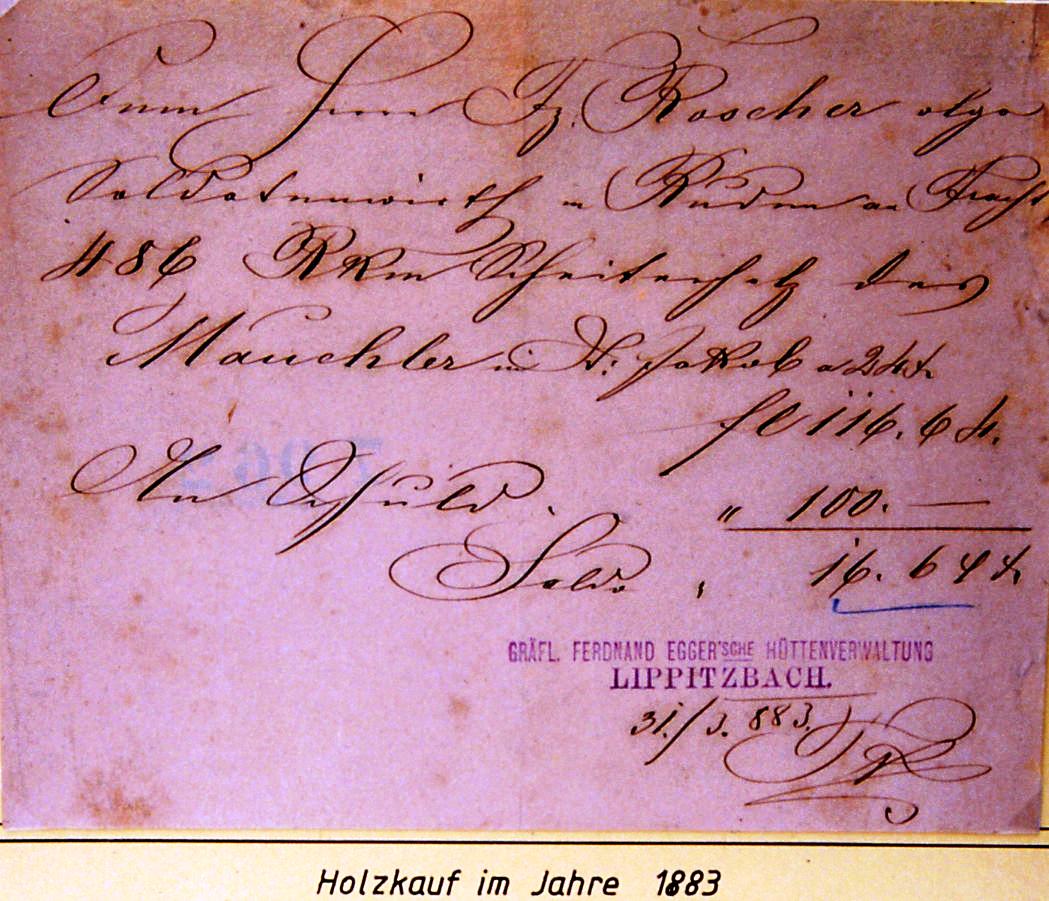 Herrn Fz. Roscher vlgo
Soldatenwirth in Ruden an Fracht
486 Rkm Scheiterholz des
Mauchler in St. Jakob a 24 kr
fl 116.64.
An Schuld. " 100. —
Saldo " 16.64 kr
GRÄFL. FERDNAND EGGER'SCHE HÜTTENVERWALTUNG
LIPPITZBACH.
31./3. 883.
Holzkauf im Jahre 1883